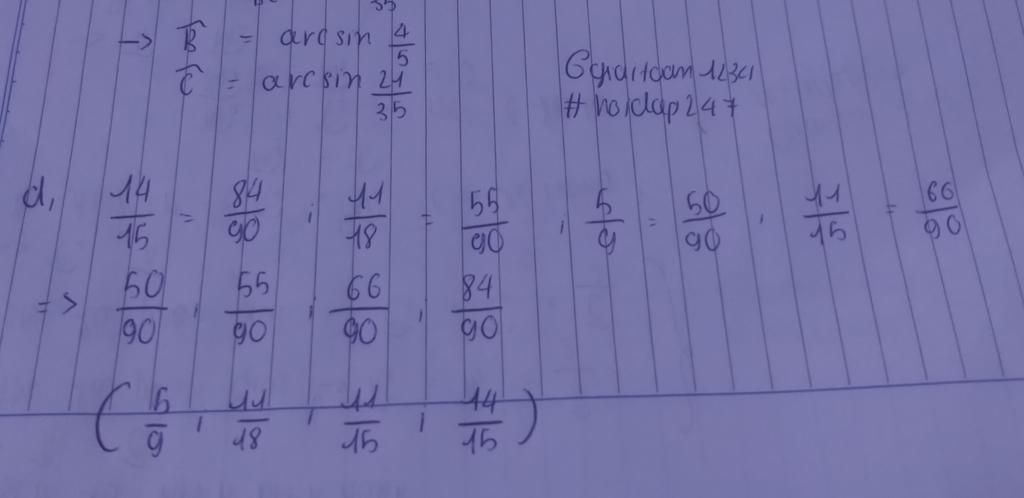 35
→ B̂ = arcsin 4/5
Ĉ = arcsin 21/35
# hoidap247
d, 14/15 = 84/90 ; 11/18 = 55/90 ; 5/9 = 50/90 ; 11/15 = 66/90
=> 50/90 ; 55/90 ; 66/90 ; 84/90
( 5/9 ; 11/18 ; 11/15 ; 14/15 )